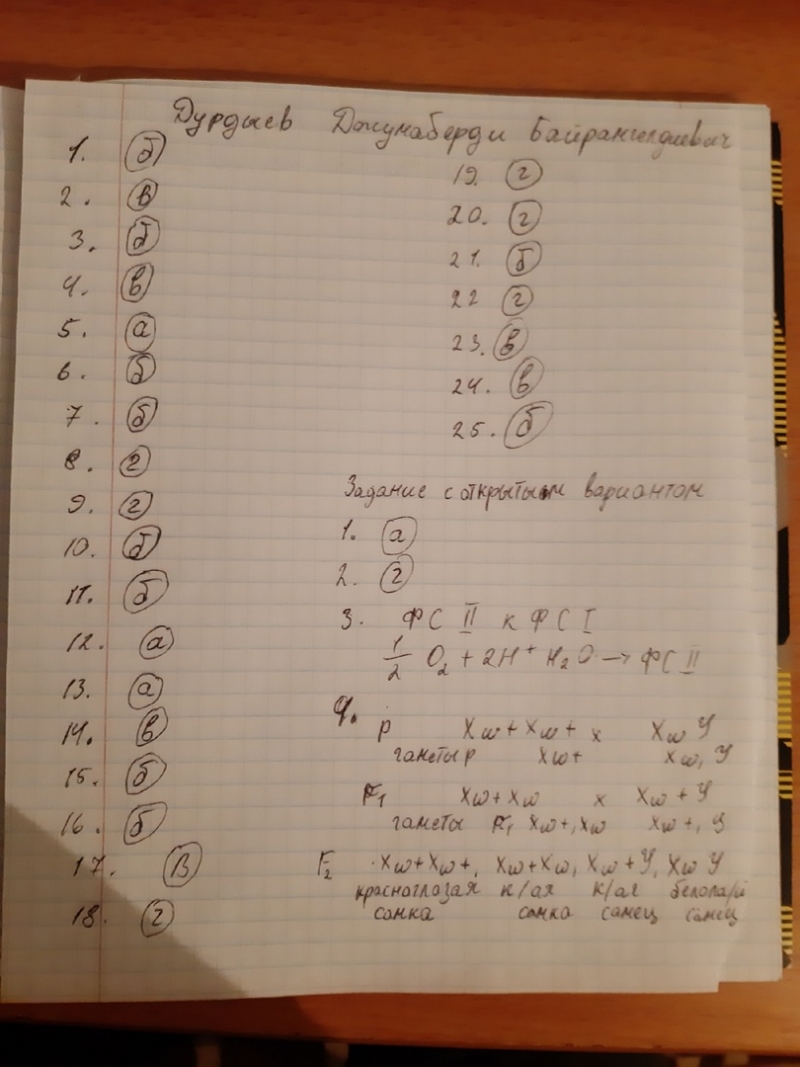 Дурдыев Джумаберди Байрамгелдиевич
1. б
2. в
3. б
4. в
5. а
6. б
7. б
8. г
9. г
10. б
11. б
12. а
13. а
14. в
15. б
16. б
17. В
18. г
19. г
20. г
21. б
22 г
23. в
24. в
25. б
Задание с открытым вариантом
1. а
2. г
3. ФС II к ФС I
1/2 O₂ + 2H⁺ H₂O → ФС II
4. P Xw+Xw+ x Xw У
гаметы P Xw+ Xw, У
F₁ Xw+Xw x Xw+У
гаметы F₁ Xw+, Xw Xw+, У
F₂ Xw+Xw+, Xw+Xw, Xw+У, Xw У
красноглазая к/ая к/ая
самка самка самец самец